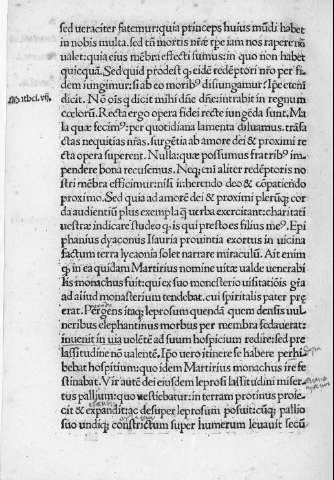 sed veraciter fatemur: quia princeps huius mūdi habet
in nobis multa. sed tñ mortis nr̄æ tp̄e iam nos rapere nō
ualet: quia eius mēbra effecti sumus: in quo non habet
quicquā. Sed quid prodest ꝙ eidē redēptori nr̄o per fi
dem iungimur: si ab eo moribꝰ disiungamur? Ipse eteni
Matthei. vij.
dicit. Nō oīs q dicit mihi dñe dñe: intrabit in regnum
cœlorū. Recta ergo opera fidei recte iungēda sunt. Ma
la quæ fecimꝰ: per quotidiana lamenta diluamus. trāsa
ctas nequitias nr̄as. surgētia ab amore dei & proximi re
cta opera superent. Nulla: quæ possumus fratribꝰ im
pendere bona recusemus. Neqꝫ eni aliter redēptoris no
stri mēbra efficimur: nisi ī:herendo deo & cōpatiendo
proximo. Sed quia ad amorē dei & proximi plerūqꝫ cor
da audientiū plus exempla q̄ uerba exercitant: charitati
uestræ indicare studeo q is qui præstoes filius meꝰ. Epi
phanius dyaconus Isauria prouintia exortus in uicina
factum terra lycaonia solet narrare miraculū. Ait enim
ꝙ in ea quidam Martirius nomine uitæ ualde uenerabi
lis monachus fuit: qui ex suo monesterio uisitatiōis gīa
ad aliud monasterium tendebat. cui spiritalis pater præ
erat. Pergens itaqꝫ leprosum quendā quem densis uul
neribus elephantinus morbus per membra fedauerat:
inuenit in uia uolētē ad suum hospicium redire: sed præ
lassitudine nō ualentē. Ipō uero itinere se habere perhi
bebat hospitium: quo idem Martirius monachus ire fe
stinabat. Vir autē dei eiusdem leprosi lassitudini miser
tus pallium: quo uestiebatur: in terram protinus proie
cit & expandit: ac desuper leprosum posuit: cūqꝫ pallio
suo undiqꝫ constrictum super humerum leuauit secū